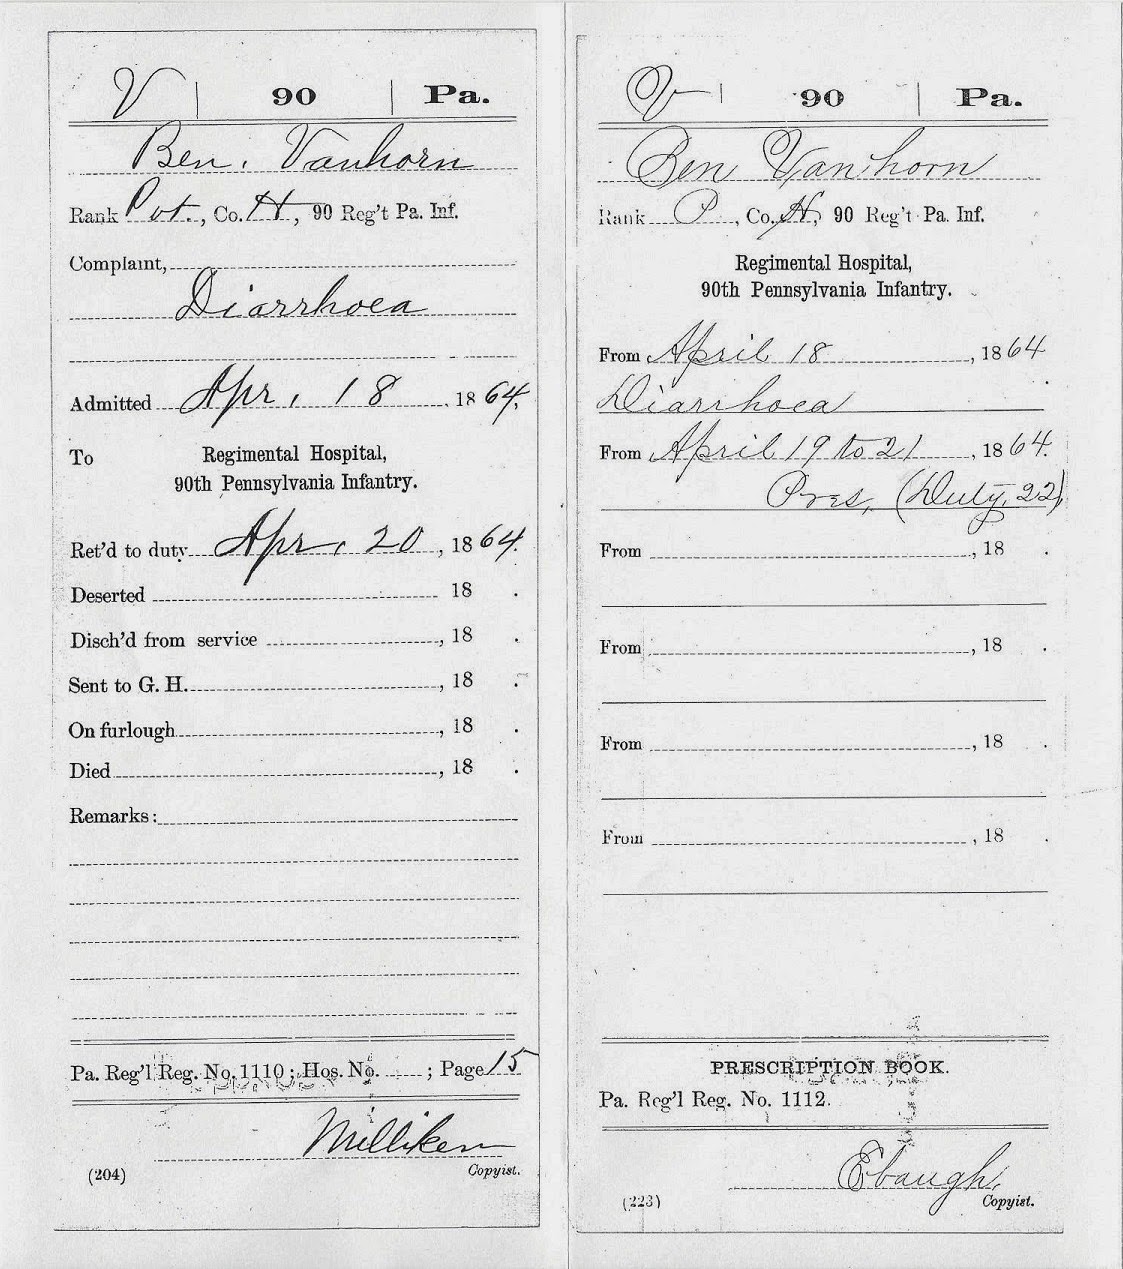 V | 90 | Pa.
Ben. Vanhorn
Rank Pvt., Co. H, 90 Reg't Pa. Inf.
Complaint,
Diarrhoea
Admitted Apr. 18 1864.
To Regimental Hospital,
90th Pennsylvania Infantry.
Ret'd to duty Apr. 20, 1864.
Deserted 18 .
Disch'd from service , 18 .
Sent to G. H. , 18 .
On furlough , 18 .
Died , 18 .
Remarks:
Pa. Reg'l Reg. No. 1110; Hos. No. ; Page 15
Milliken
(204) Copyist.
V | 90 | Pa.
Ben Vanhorn
Rank P, Co. H, 90 Reg't Pa. Inf.
Regimental Hospital,
90th Pennsylvania Infantry.
From April 18, 1864
Diarrhoea
From April 19 to 21, 1864.
Pres. (Duty, 22)
From , 18 .
From , 18 .
From , 18 .
From , 18 .
PRESCRIPTION BOOK.
Pa. Reg'l Reg. No. 1112.
Ebaugh.
(223) Copyist.